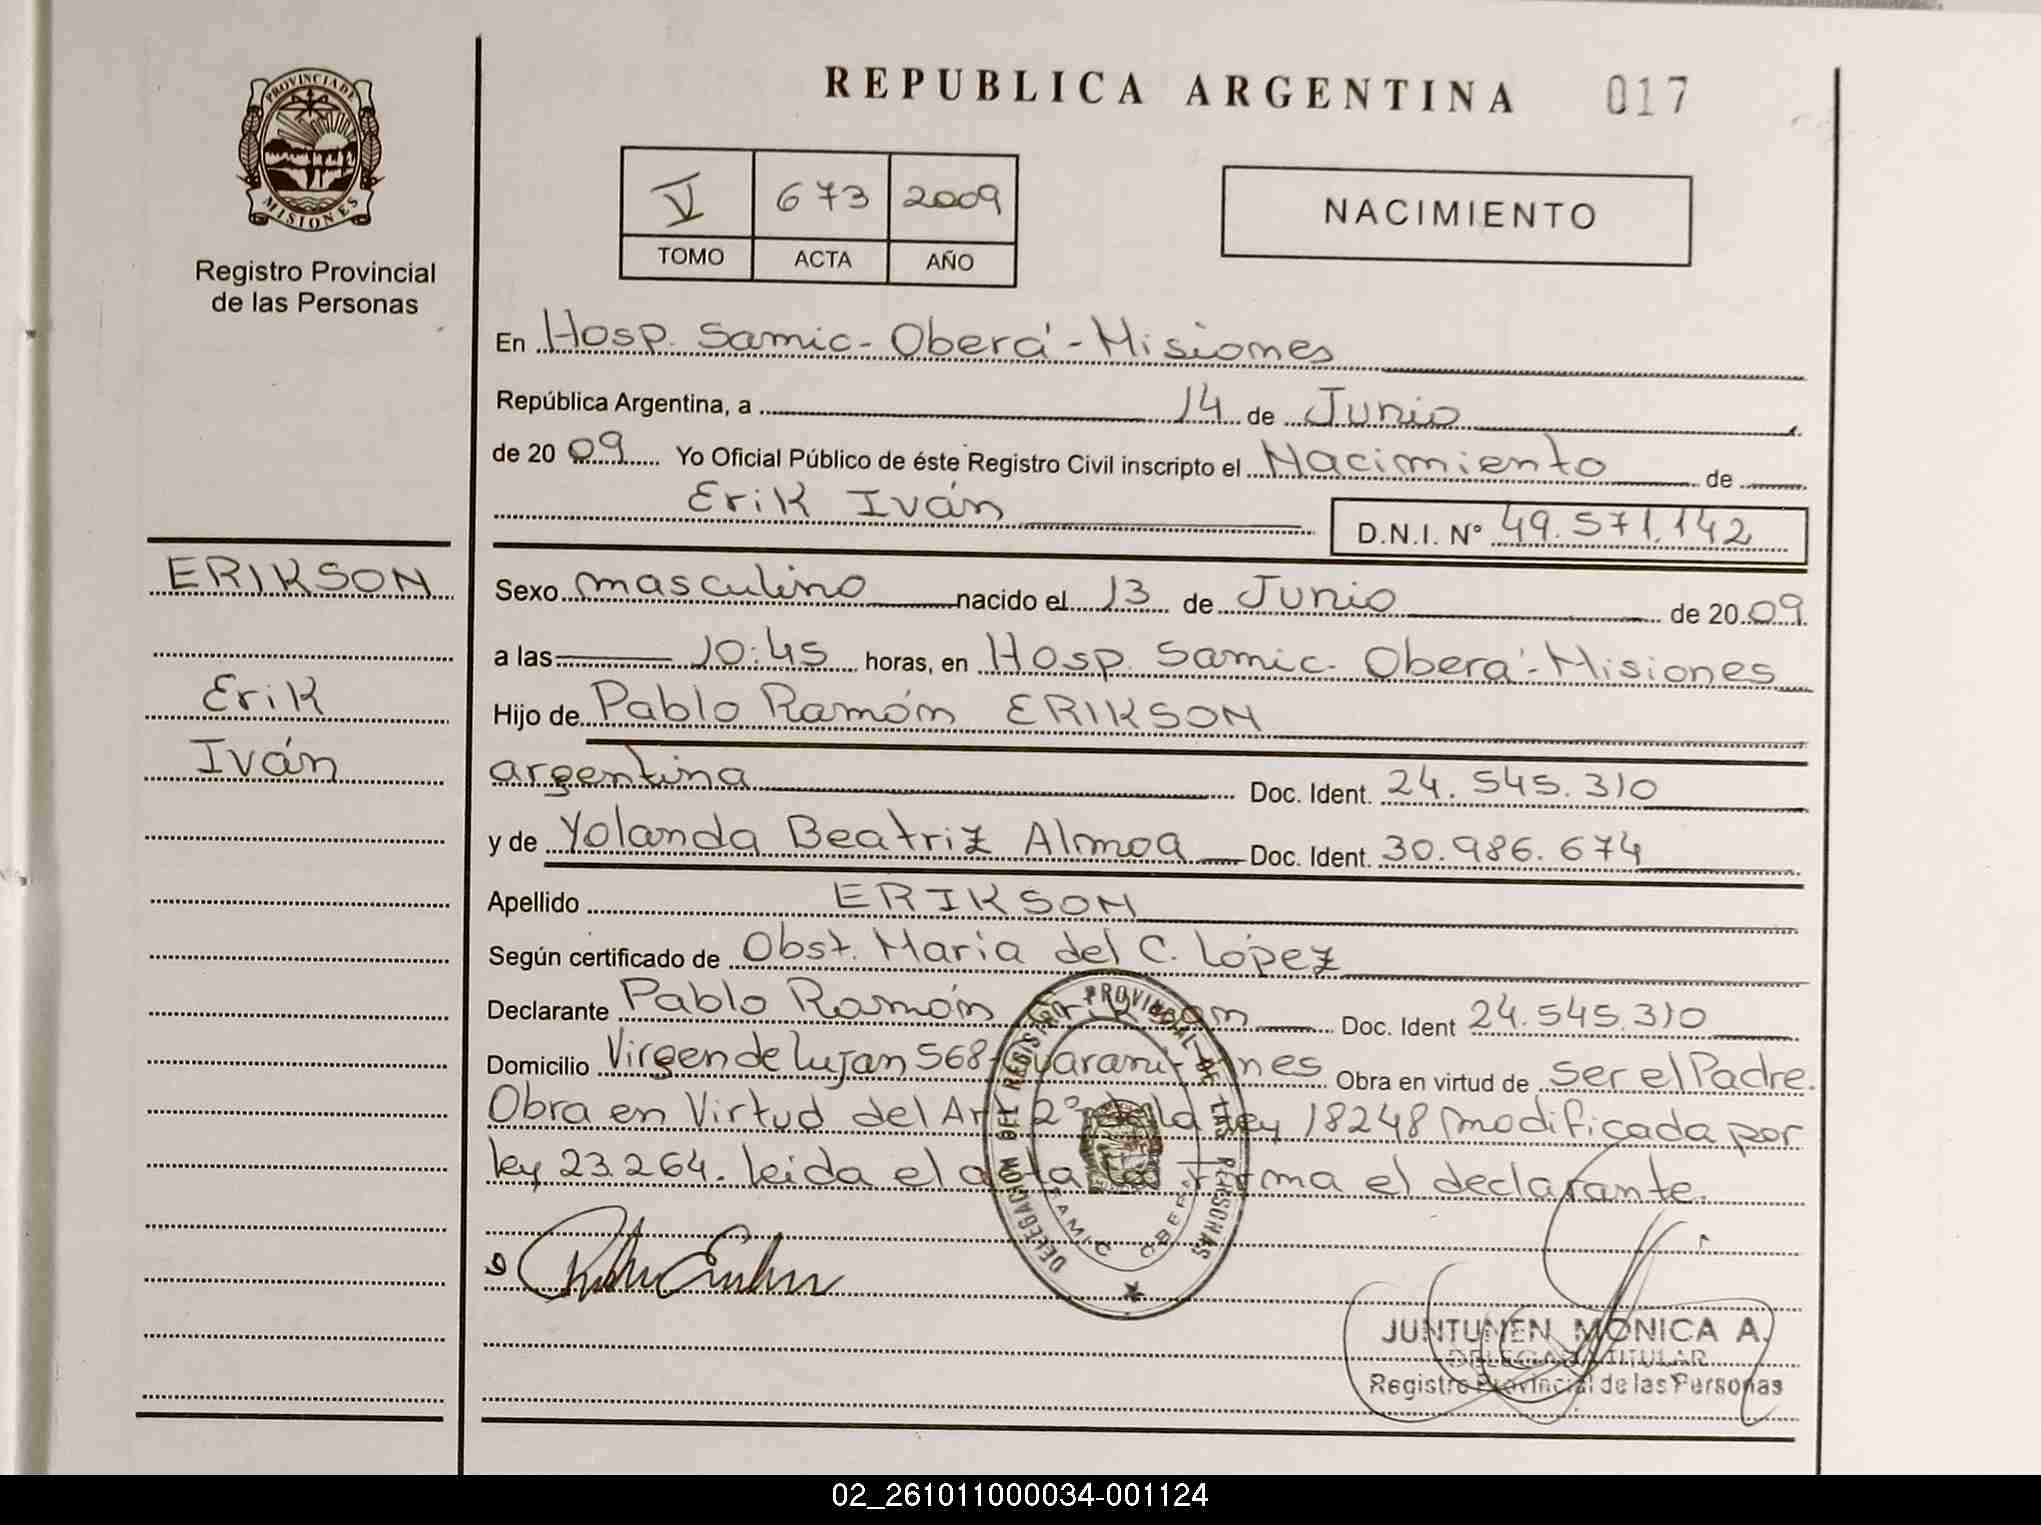 REPUBLICA ARGENTINA 017
PROVINCIA DE
MISIONES
Registro Provincial
de las Personas
V 673 2009
TOMO ACTA AÑO
NACIMIENTO
En Hosp. Samic - Oberá - Misiones
República Argentina, a 14 de Junio
de 2009 Yo Oficial Público de éste Registro Civil inscripto el Nacimiento de
Erik Iván D.N.I. Nº 49.571.142
ERIKSON
Erik
Iván
Sexo masculino nacido el 13 de Junio de 2009
a las 10:45 horas, en Hosp. Samic - Oberá - Misiones
Hijo de Pablo Ramón ERIKSON
argentina Doc. Ident. 24.545.310
y de Yolanda Beatriz Almoa Doc. Ident. 30.986.674
Apellido ERIKSON
Según certificado de Obst. María del C. López
Declarante Pablo Ramón Erikson Doc. Ident 24.545.310
Domicilio Virgen de Lujan 568 - Guaraní - Mnes Obra en virtud de Ser el Padre.
Obra en Virtud del Art 2º de la ley 18248 modificada por
ley 23.264. leida el acta la firma el declarante.
DELEGACION DEL REGISTRO PROVINCIAL DE LAS PERSONAS
SAMIC OBERA
JUNTUNEN MONICA A.
DELEGADA TITULAR
Registro Provincial de las Personas
02_261011000034-001124